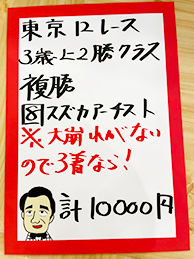 東京12レース
3歳上2勝クラス
複勝
図スズカアーチスト
※大崩れがない
ので3着なら!
計10000円